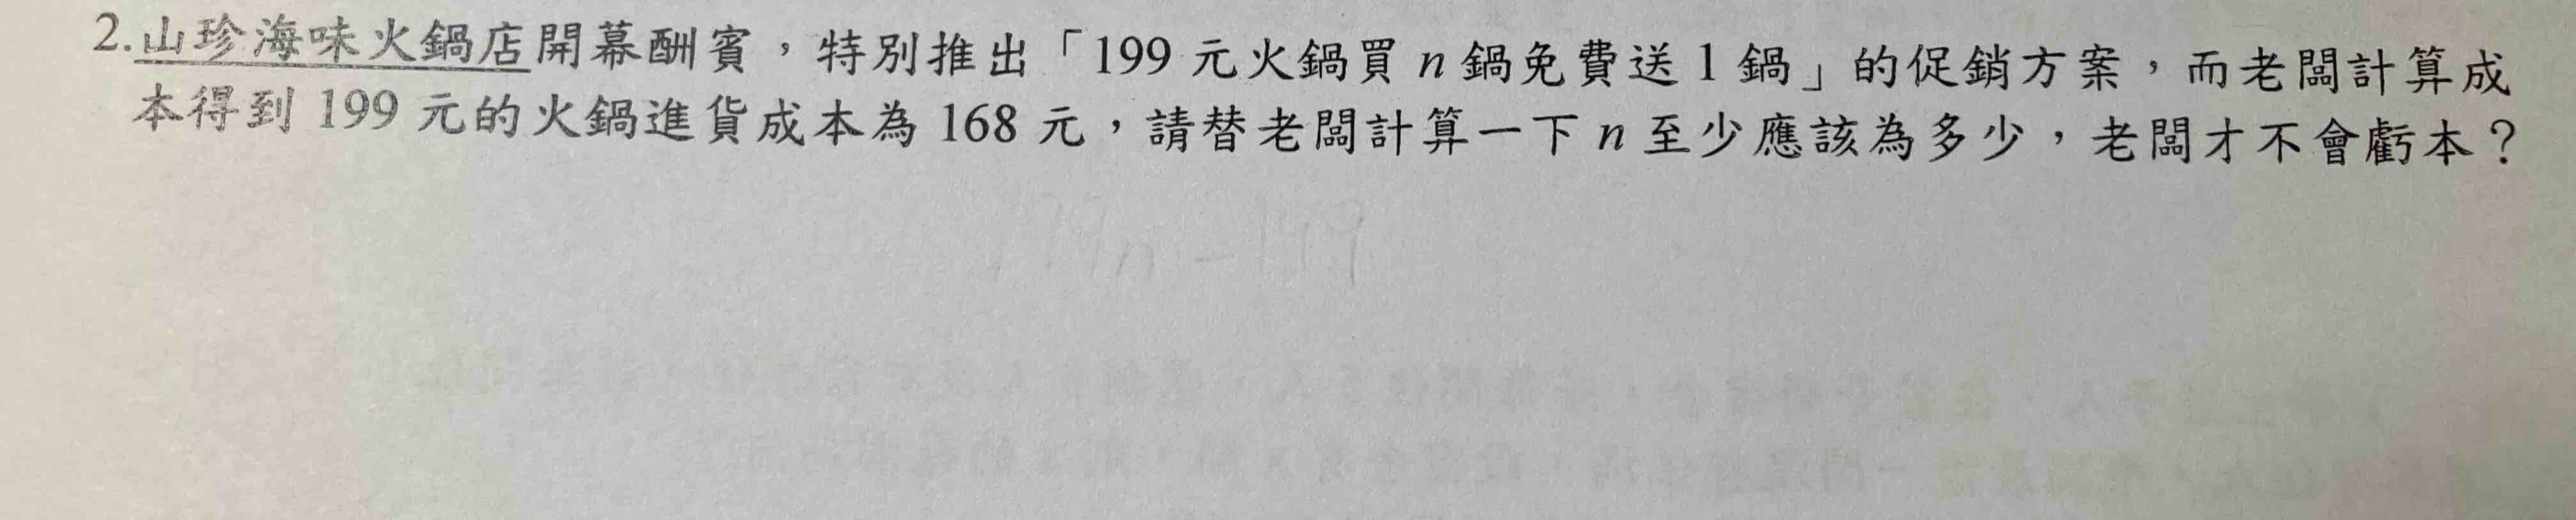 2.山珍海味火鍋店開幕酬賓，特別推出「199 元火鍋買 n 鍋免費送 1 鍋」的促銷方案，而老闆計算成
本得到 199 元的火鍋進貨成本為 168 元，請替老闆計算一下 n 至少應該為多少，老闆才不會虧本？